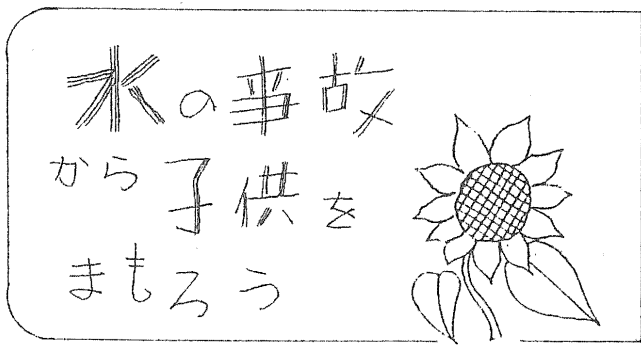 水の事故
から子供を
まもろう